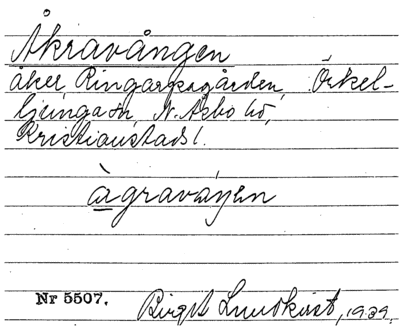 Åkravången
åker, Ringarpsgården, Örkel-
ljunga sn, N. Åsbo hd,
Kristianstads l.
àgraváŋen
Nr 5507.
Birgit Lundkvist, 1939.